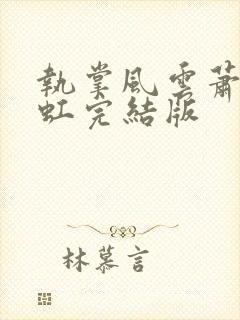 執掌風雲蕭
虹完結版
林慕言